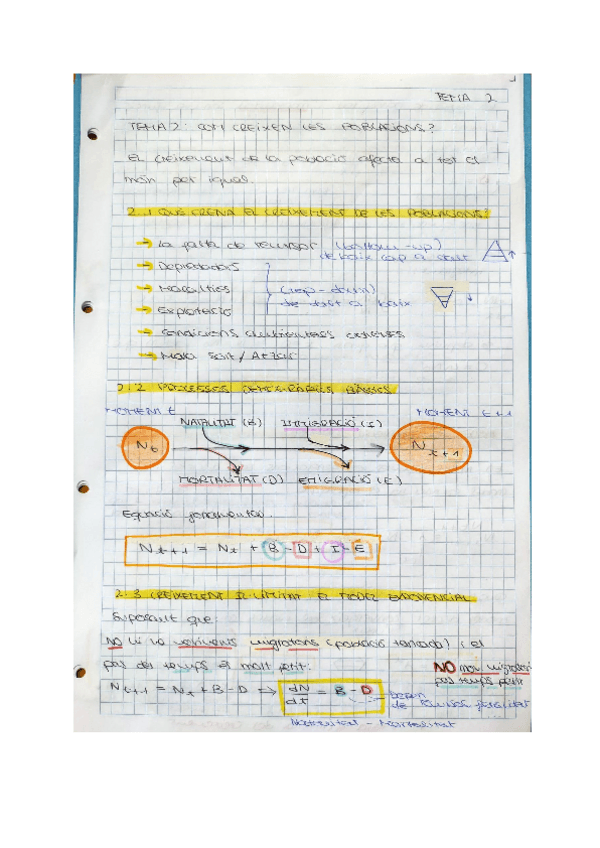 TEMA 2
TEMA 2: COM CREIXEN LES POBLACIONS?
El creixement de la població afecta a tot el
món per igual.
2.1 QUE FRENA EL CREIXEMENT DE LES POBLACIONS?
→ La falta de recursos (bottom-up)
de baix cap a dalt
→ Depredadors
→ Malalties (top-down)
de dalt a baix
→ Explotació
→ Condicions extremes
→ Mala sort / Atzar
2.2 PROCESSOS DEMOGRÀFICS BÀSICS
MOMENT t MOMENT t+1
NATALITAT (B) IMMIGRACIÓ (I)
Nt Nt+1
MORTALITAT (D) EMIGRACIÓ (E)
Equació fonamental:
Nt+1 = Nt + B - D + I - E
2.3 CREIXEMENT IL·LIMITAT: EL MODEL EXPONENCIAL
Suposant que:
NO hi ha moviments migratoris (població tancada) i el
pas del temps és molt petit: NO mov. migratoris
pas temps petit
Nt+1 = Nt + B - D => dN/dt = B - D
de
Natalitat - Mortalitat